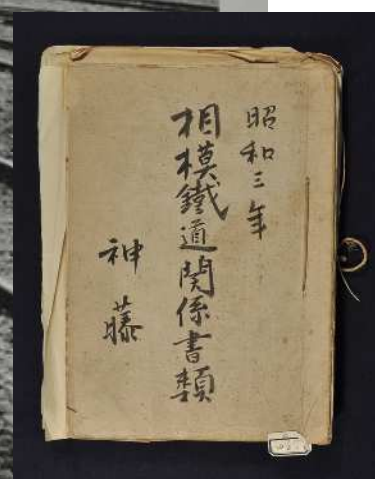 昭和三年
相模鐵道関係書類
神藤